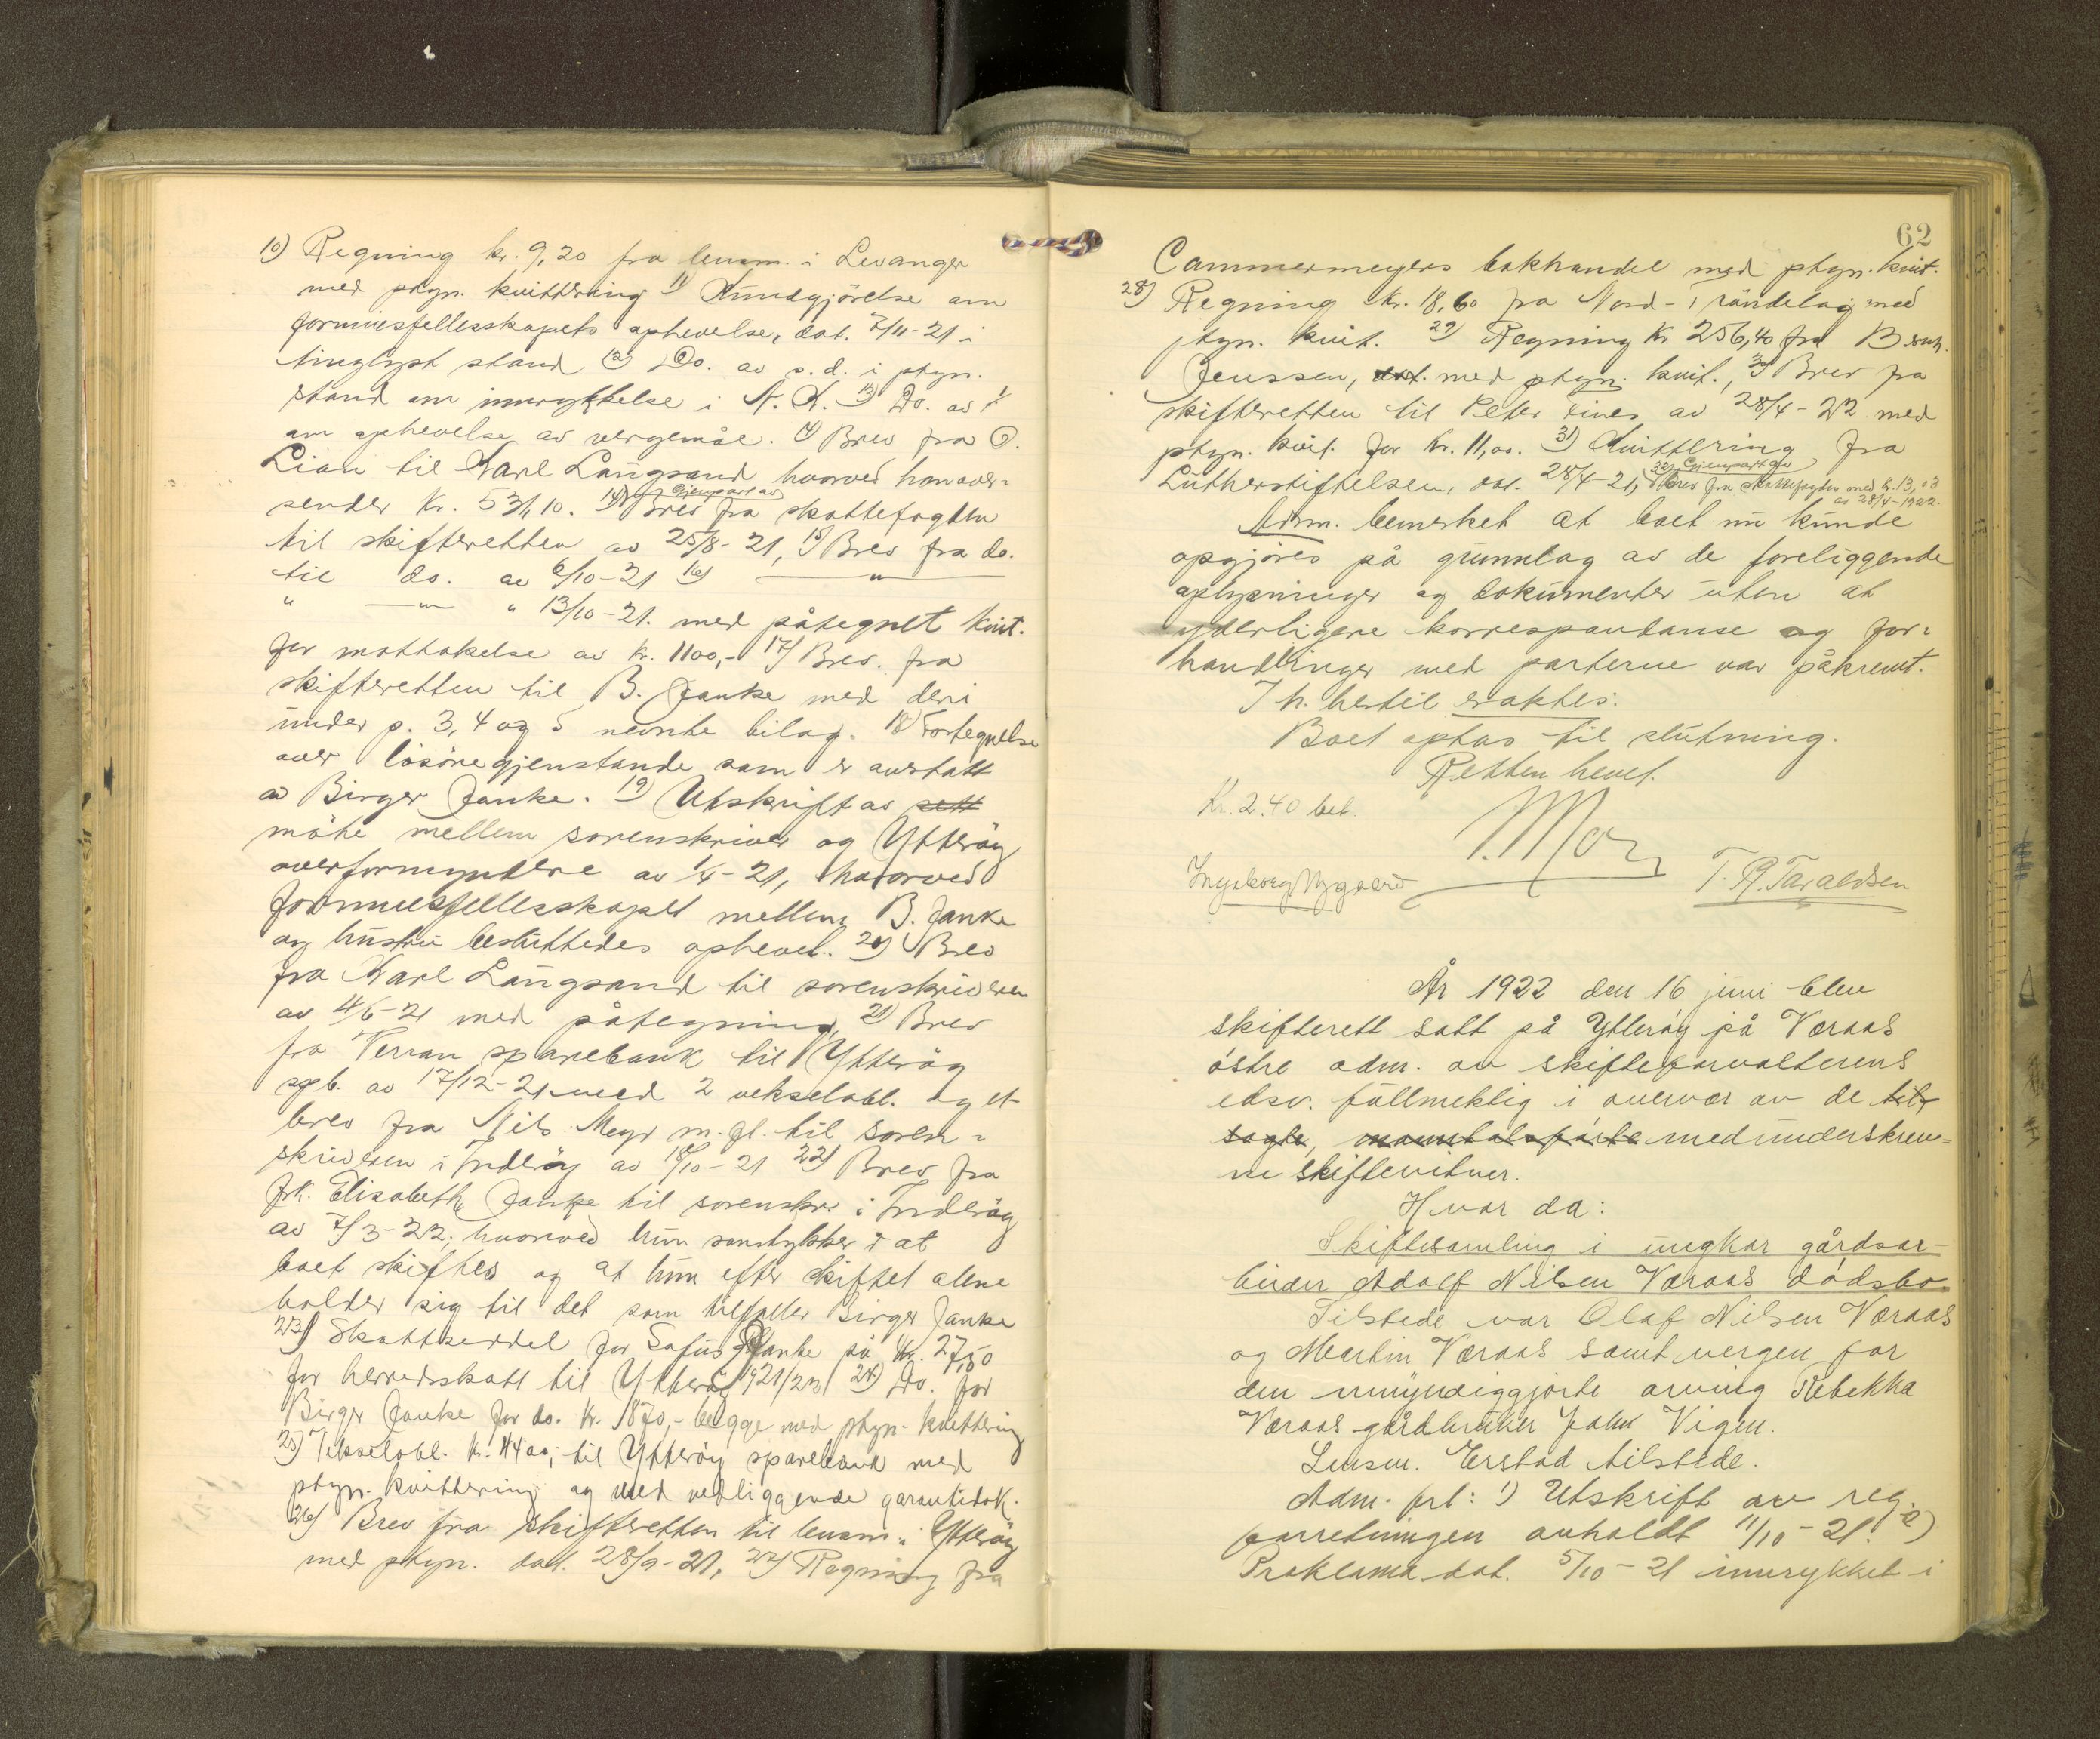 10) Regning kr. 9,20 fra lensm. i Levanger
med ptgn. kvittering 11) Kundgjörelse om
formuesfellesskapets ophevelse, dat. 7/11-21 i
tinglyst stand 12) Do. av s.d. i ptgn.
stand om innrykkelse i N. T. 13) Do. av
om ophevelse av vergemåe. 14) Brev fra O.
Lian til Karl Langsand hvorved han over=
sender kr. 531,10. 14) Gjenpart av Brev fra skattefogden
til skifteretten av 25/8-21, 15) Brev fra do.
til do. av 6/10-21 16) — " —
" — " — " 13/10-21. med påtegnet kvit.
for mottakelse av kr. 1100,- 17) Brev fra
skifteretten til B. Janke med deri
under p. 3, 4 og 5 nevnte bilag. 18) Fortegnelse
over lösöregjenstande som er overtatt
av Birger Janke. 19) Utskrift av sett
möte mellem sorenskriver og Ytteröy
overformyndere av 1/4-21, hvorved
formuesfellesskapet mellem B. Janke
og hustru besluttedes ophevet. 20) Brev
fra Karl Langsand til sorenskriveren
av 4/6-21 med påtegning, 21) Brev
fra Verran sparebank til Ytteröy
spb. av 17/12-21 med 2 vekselobl. og et
brev fra Nils Meyr m. fl. til soren=
skriveren i Inderöy av 18/10-21 22) Brev fra
frk. Elisabeth Janke til sorenskr. i Inderöy
av 7/3-22, hvorved hun samtykker i at
boet skiftes og at hun efter skiftet alene
holder sig til det som tilfaller Birger Janke
23) Skatteseddel for Sofus Janke på kr. 27,50
for herredsskatt til Ytteröy 1921/22 24) Do. for
Birger Janke for do. kr. 1870,- begge med ptgn. kvittering
25) Vekselobl. kr. 4400,- til Ytteröy sparebank med
ptgn. kvittering og med vedliggende garantidok.
26) Brev fra skifteretten til lensm. i Ytteröy
med ptgn. dat. 28/9-21, 27) Regning fra
62
Cammermeyers bokhandel med ptgn. kvit.
28) Regning kr. 18,60 fra Nord-Tröndelag med
ptgn. kvit. 29) Regning kr 256,40 fra Bernh.
Jenssen, dat. med ptgn. kvit., 30) Brev fra
skifteretten til Peter Vines av 28/4-22 med
ptgn. kvit. for kr. 11,00. 31) Kvittering fra
Lutherstiftelsen, dat. 28/4-21, 32) Gjenpart av Brev fra skattefogden med kr. 13,03
av 28/4-1922.
Adm. bemerket at boet nu kunde
opgjöres på grunnlag av de foreliggende
oplysninger og dokumenter uten at
yderligere korrespondanse og for=
handlinger med parterne var påkrevet.
I h. hertil vaktes:
Boet optas til slutning.
Retten hevet.
Kr. 2.40 bet.
Ingeborg Nygaard T. R. Taraldsen
År 1922 den 16 juni blev
skifterett satt på Ytteröy på Væraas
östre adm. av skifteforvalterens
edsv. fullmektig i overvær av de til-
sagte, manntalsförte medunderskrev=
ne skiftevitner.
Hvor da:
Skiftesamling i ungkar gårdsar-
beider Adolf Nilsen Væraas dödsbo.
Tilstede var Olaf Nilsen Væraas
og Martin Væraas samt vergen for
den umyndiggjorte arving Rebekka
Væraas gårdbruker John Vigen.
Lensm. Erstad tilstede.
Adm. frl: 1) Utskrift av reg.
forretningen avholdt 11/10-21. 2)
Proklama dat. 5/10-21 innrykket i